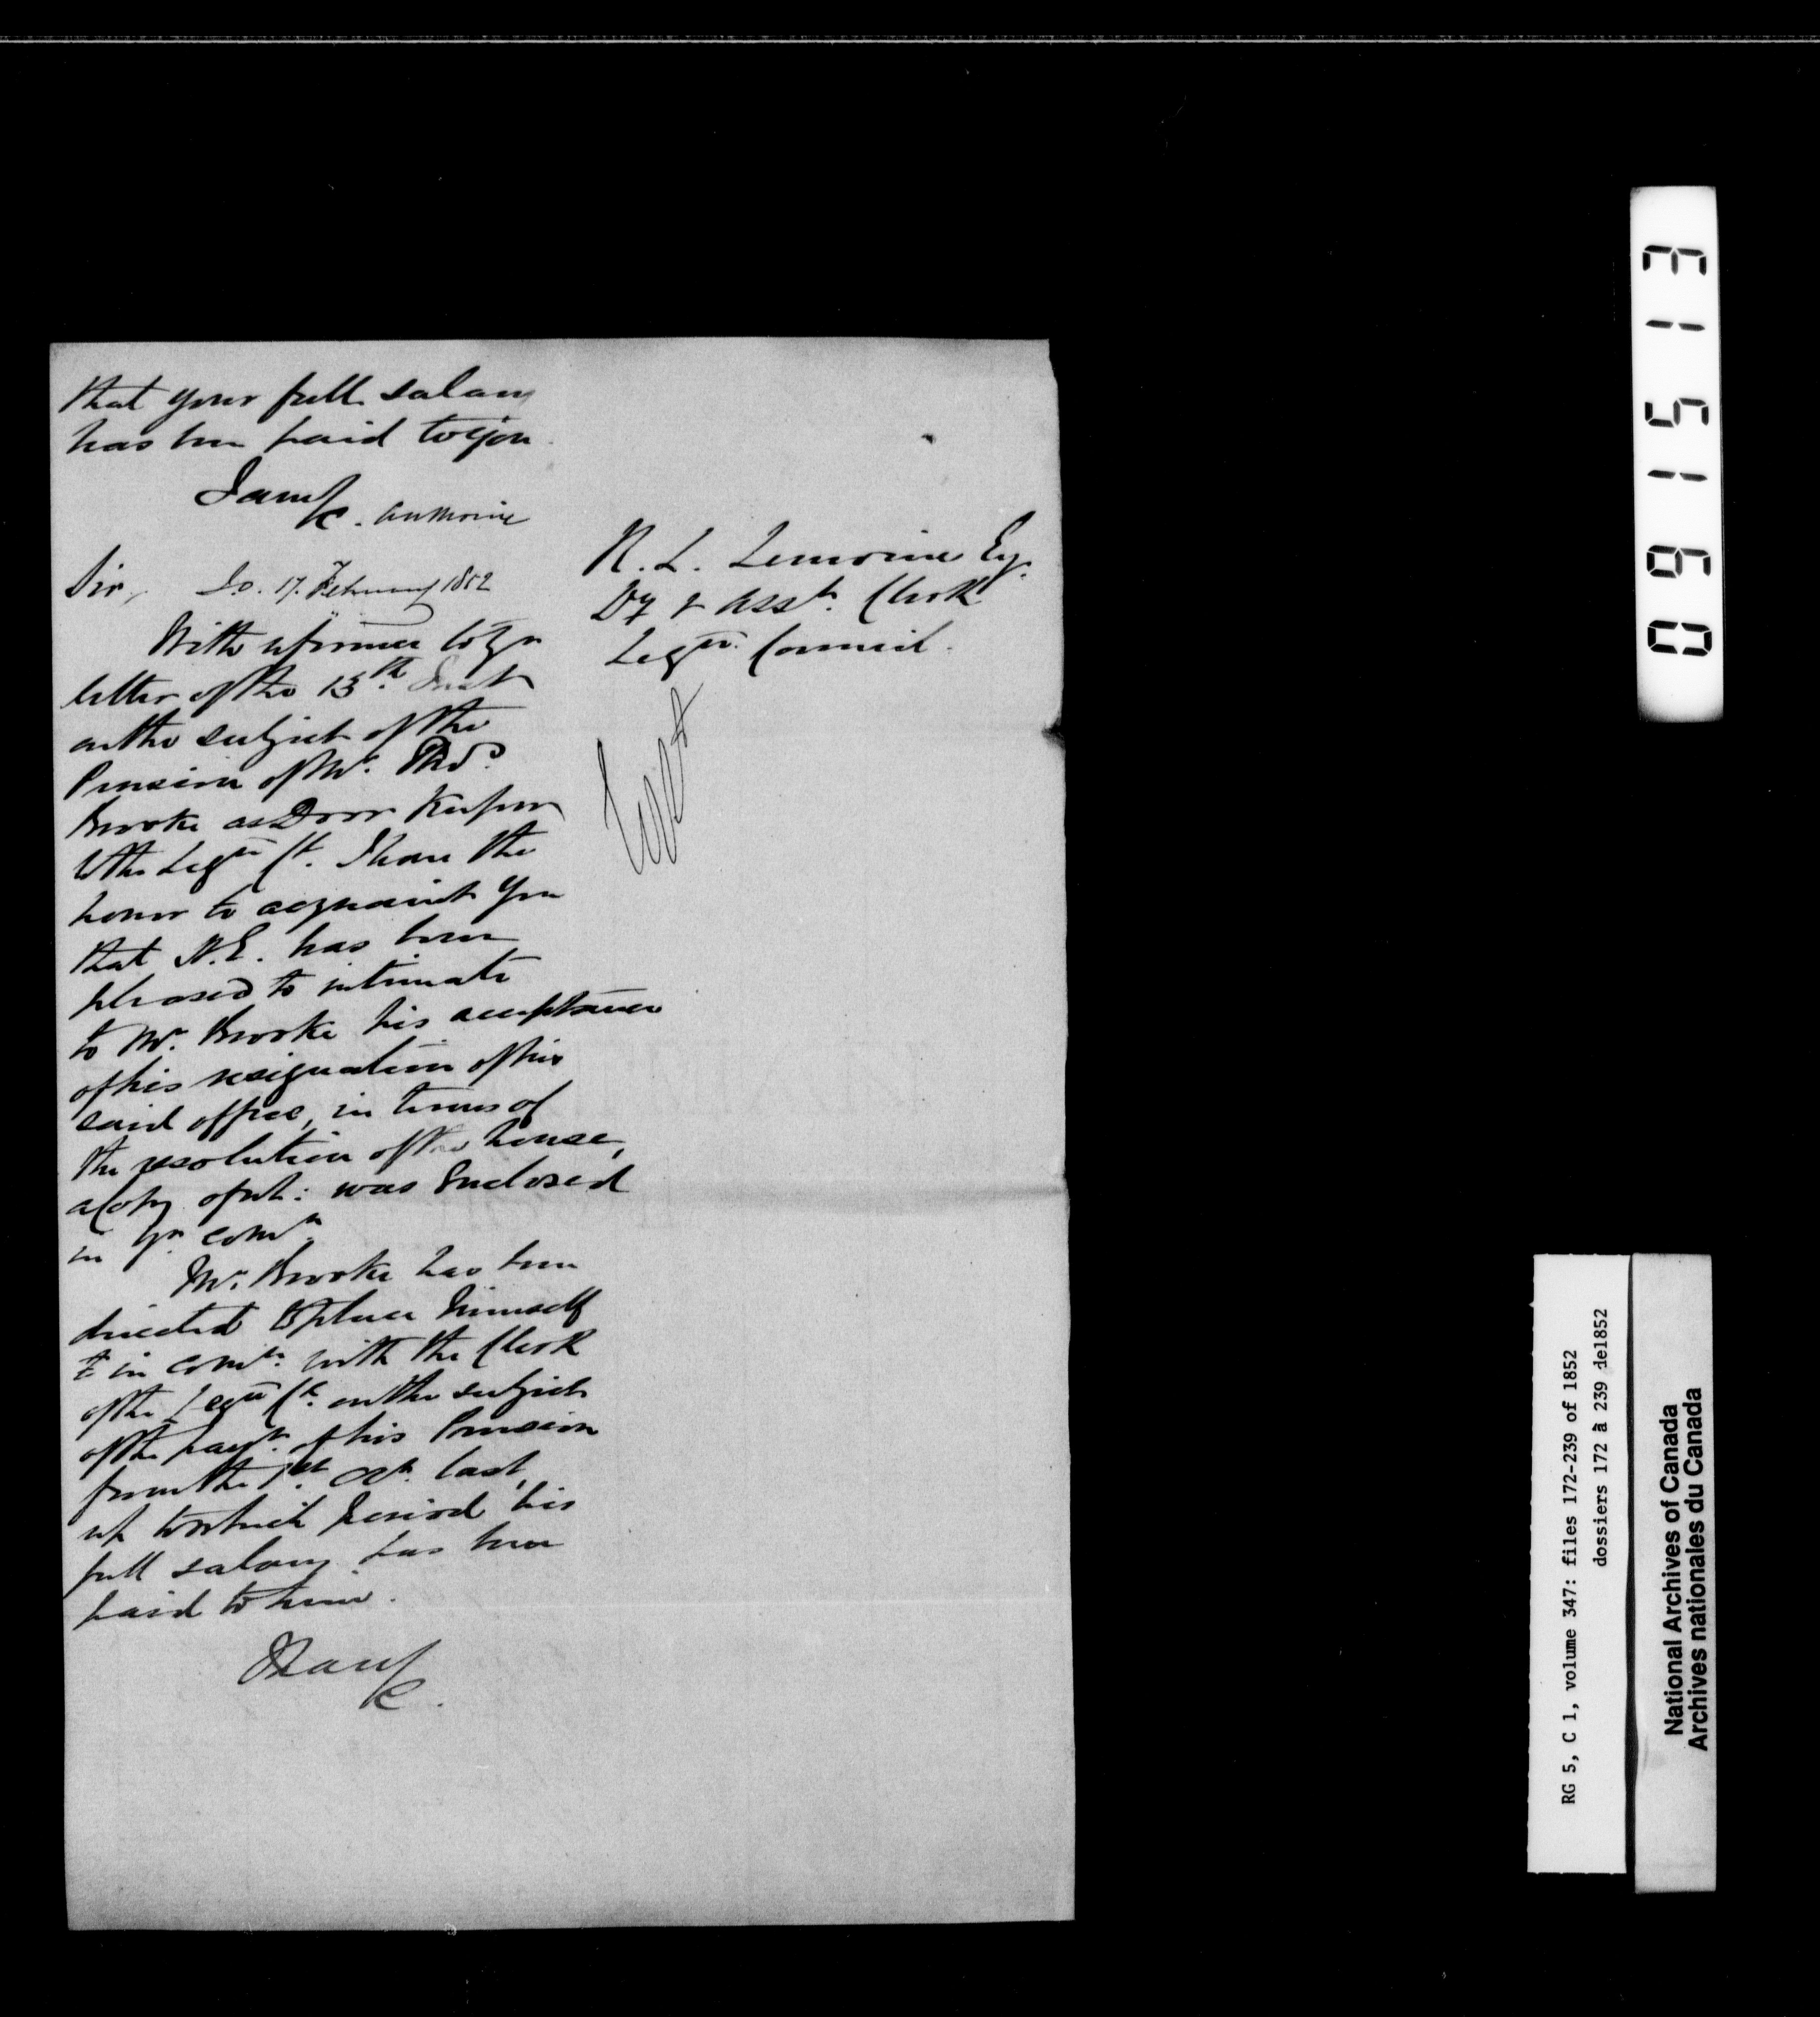 that your full salary
has been paid to you.
I am &c.
Sir, S.O. 17. February 1852
With reference to yr
letter of the 13th. Inst
on the subject of the
Pension of Mr. Thos.
Brooke as Door Keeper
to the Legve Cl. I have the
honor to acquaint you
that H.E. has been
pleased to intimate
to Mr. Brooke his acceptance
of his resignation of his
said office, in terms of
the resolution of the house,
a Copy of wh: was Enclosed
in yr comn.
Mr. Brooke has been
directed to place himself
in comn. with the Clerk
of the Legve Cl. on the subject
of the paymt. of his Pension
from the 1st. Octr. last,
up to which period his
full salary has been
paid to him.
I have &c.
R. L. Lemoine Esq.
Dy & Asst. Clerk
Legve. Council.
091513
RG 5, C 1, volume 347: files 172-239 of 1852
dossiers 172 à 239 de1852
National Archives of Canada
Archives nationales du Canada